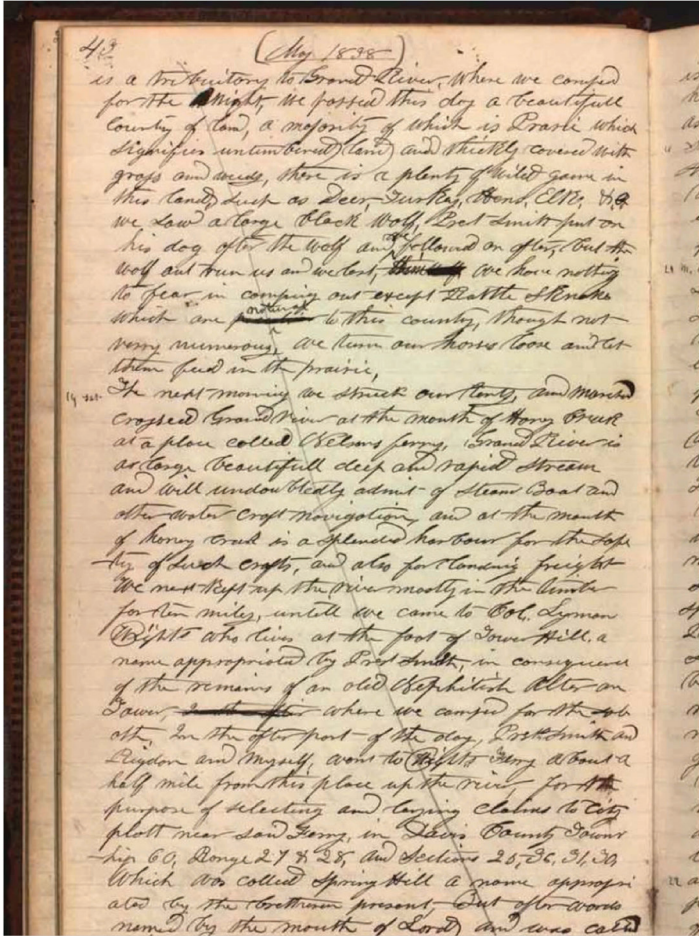 43
(May 1838)
is a tributary to Grand River, where we camped
for the night, we passed this day a beautifull
country of land, a majority of which is Prarie which
signifies untimbered land and thickly covered with
grass and weeds, there is a plenty of wild game in
this land, such as Deer, Turkey, Hens, Elk, &c
we saw a large black wolf, Prest Smith put on
his dog after the wolf and we followed on after, but the
wolf out run us and we lost, we have nothing
to fear in camping out except Rattle Snakes
which are natural to this country, though not
verry numerous, we turn our horses loose and let
them feed in the prairie,
19
The next morning we struck our tents, and marched
crossed Grand river at the mouth of Honey Creek
at a place called Nelsons ferry, Grand River is
a large beautifull deep and rapid stream
and will undoubtedly admit of Steam Boat and
other water craft navigation, and at the mouth
of honey creek is a splendid harbour for the safe
-ty of such crafts, and also for landing freight
We next kept up the river mostly in the timber
for ten miles, untill we came to Col. Lyman
Wights who lives at the foot of Tower Hill, a
name appropriated by Prest Smith, in consequence
of the remains of an old Nephitish Alter an
Tower, where we camped for the sab
oth, In the after part of the day, Prest Smith and
Rigdon and myself, went to Wights Ferry about a
half mile from this place up the river, for the
purpose of selecting and laying claims to City
plott near said Ferry, in Davis County Towns
-hip 60, Range 27 & 28, and Sections 25, 36, 31, 30,
Which was called Spring Hill a name appropri
ated by the bretheren present, But after words
named by the mouth of Lord and was called